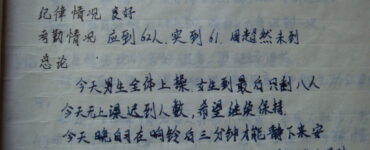 纪律情况 良好
考勤情况 应到62人,实到61.周超然未到
总论:
今天男生全体上操,女生到最后只剩八人
今天无上课迟到人数,希望继续保持.
今天晚自习在响铃后三分钟才能静下来安